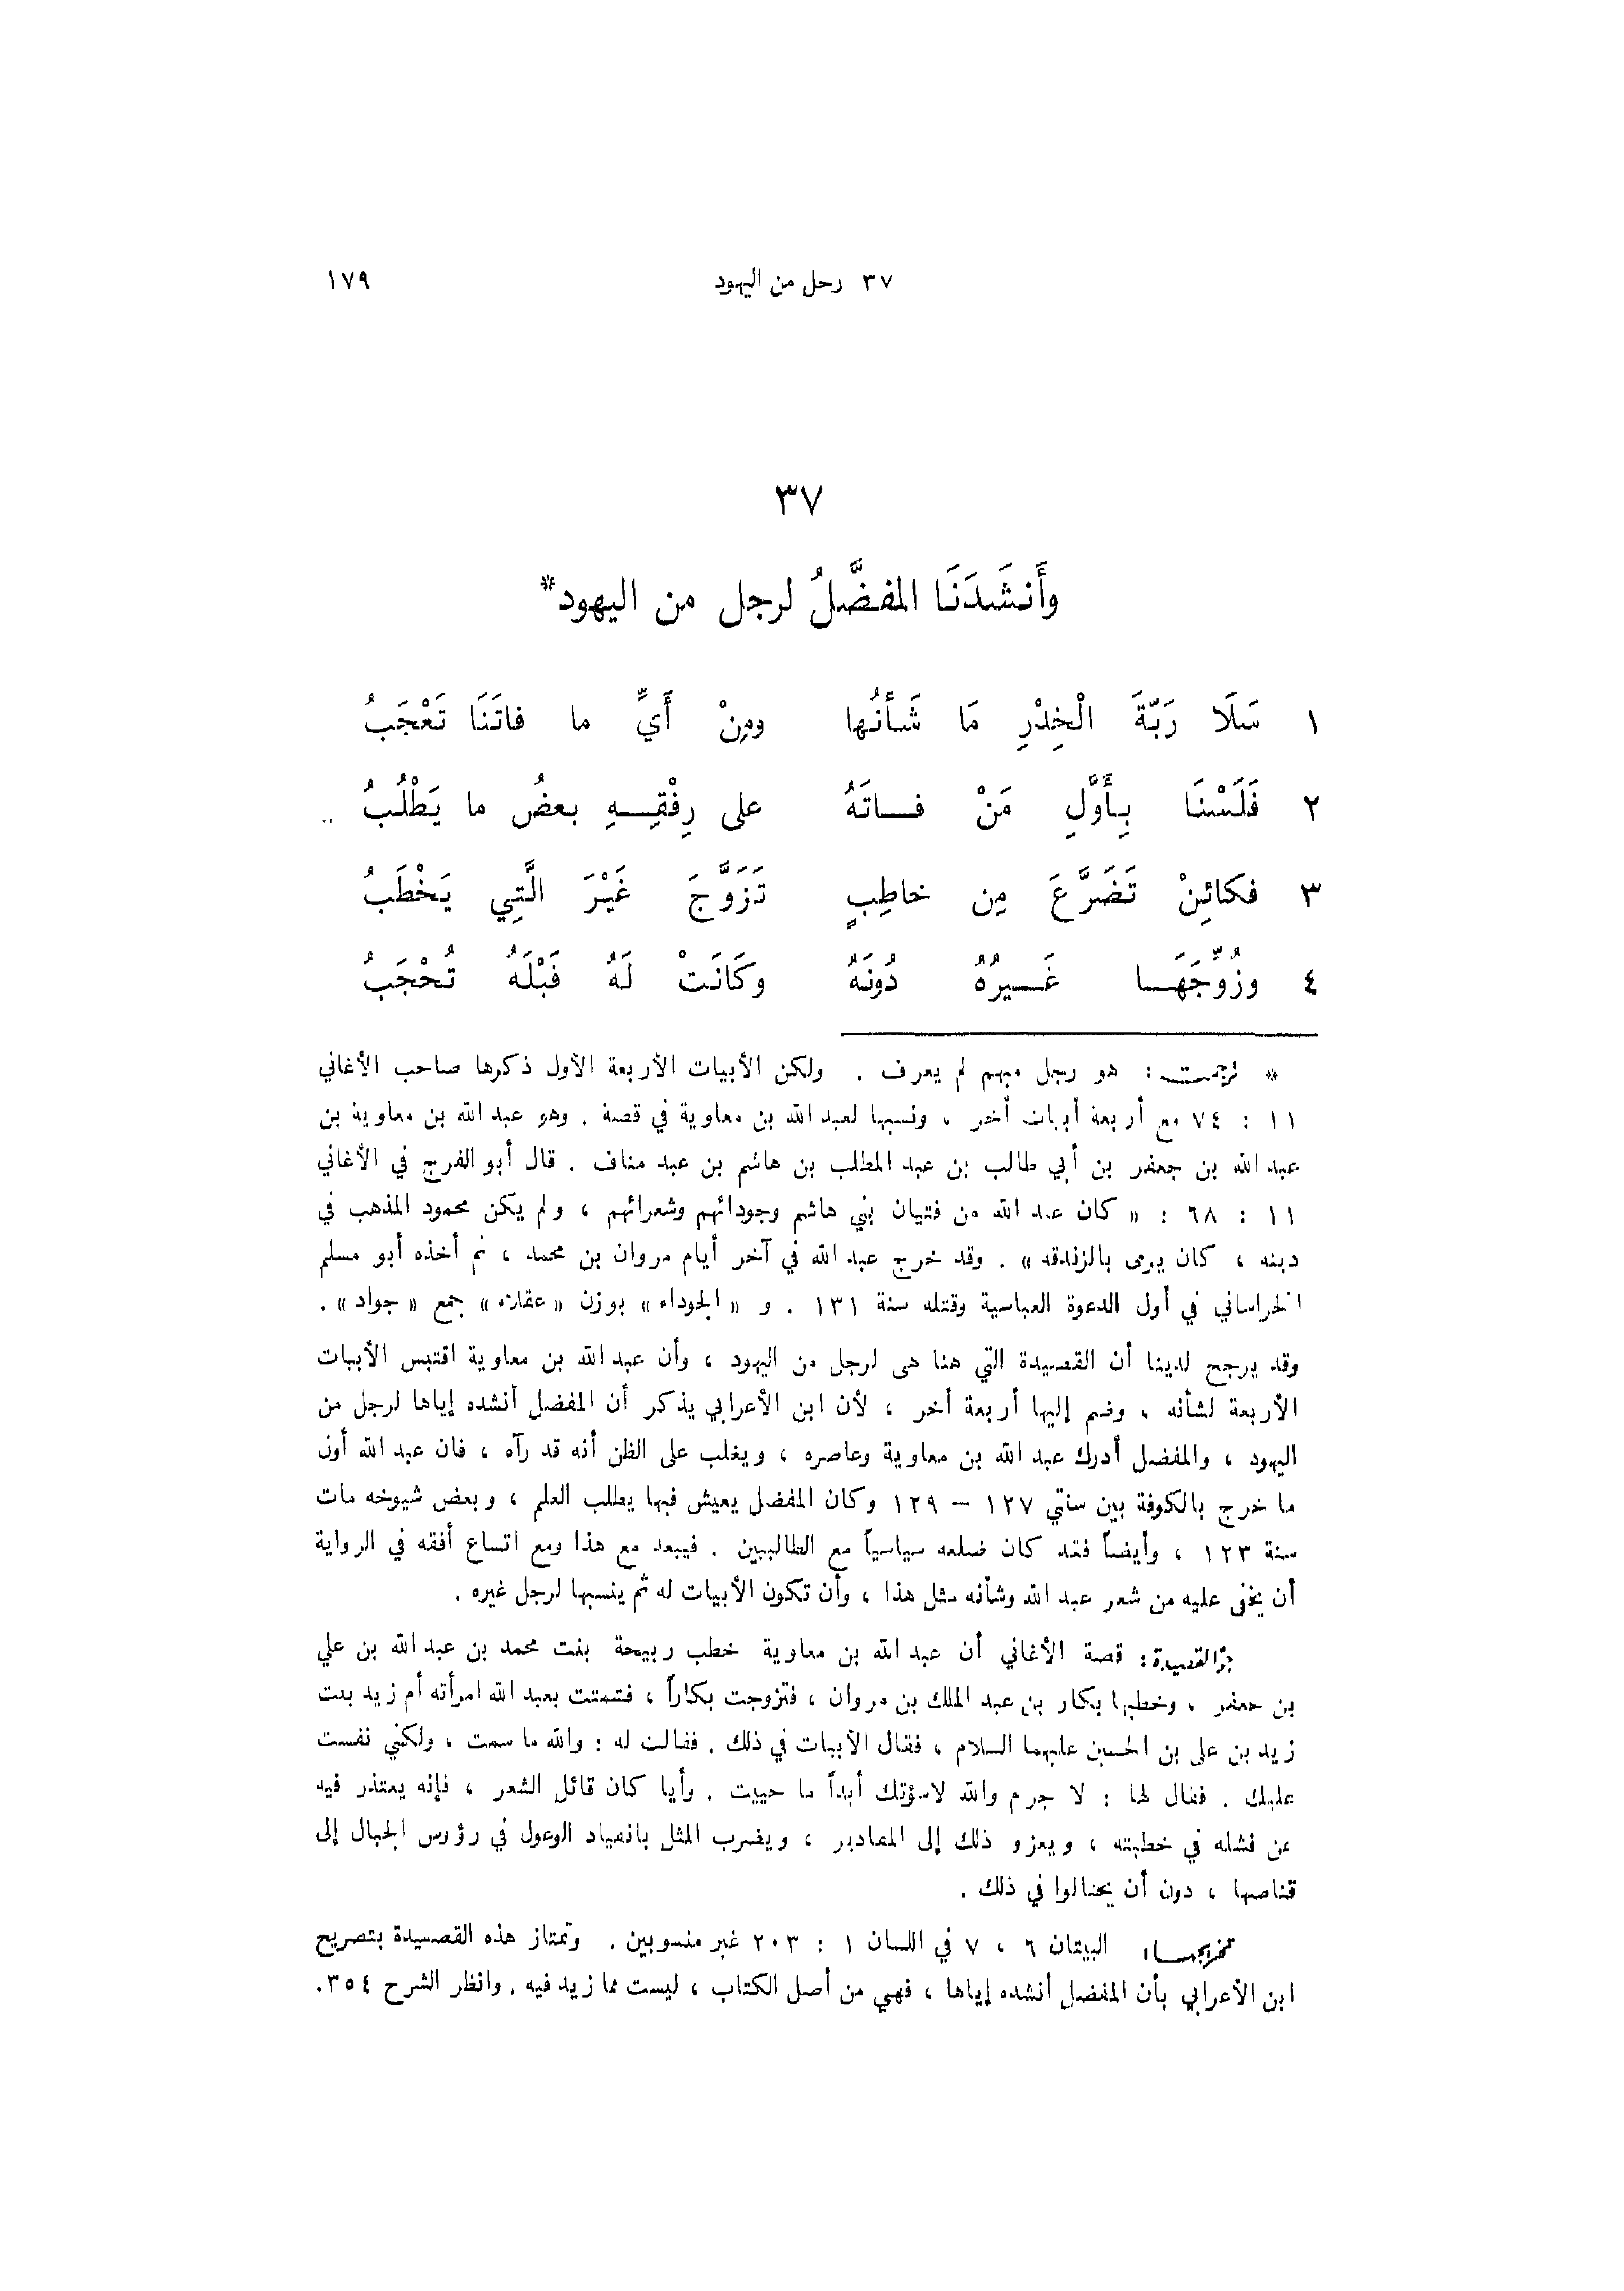 ٣٧ رجل من اليهود ١٧٩
٣٧
وأَنشَدَنَا المفضَّلُ لرجل من اليهود*
١ سَلَا رَبَّةَ الْخِدْرِ مَا شَأْنُها ومِنْ أَيِّ ما فاتَنَا تَعْجَبُ
٢ فَلَسْنَا بِأَوَّلِ مَنْ فاتَهُ على رِفْقِهِ بعضُ ما يَطْلُبُ
٣ فكائِنْ تَضَرَّعَ مِن خاطِبٍ تَزَوَّجَ غَيْرَ الَّتِي يَخْطُبُ
٤ وزُوِّجَهَا غَيرُهُ دُونَهُ وكَانَتْ لَهُ قَبْلَهُ تُحْجَبُ
* ترجمته: هو رجل مبهم لم يعرف . ولكن الأبيات الأربعة الأول ذكرها صاحب الأغاني
١١ : ٧٤ مع أربعة أبيات أخر ، ونسبها لعبد الله بن معاوية في قصة . وهو عبد الله بن معاوية بن
عبد الله بن جعفر بن أبي طالب بن عبد المطلب بن هاشم بن عبد مناف . قال أبو الفرج في الأغاني
١١ : ٦٨ : « كان عبد الله من فتيان بني هاشم وجودائهم وشعرائهم ، ولم يكن محمود المذهب في
دينه ، كان يرمى بالزندقة » . وقد خرج عبد الله في آخر أيام مروان بن محمد ، ثم أخذه أبو مسلم
الخراساني في أول الدعوة العباسية وقتله سنة ١٣١ . و « الجوداء » بوزن « عقلاء » جمع « جواد » .
وقد يرجح لدينا أن القصيدة التي هنا هى لرجل من اليهود ، وأن عبد الله بن معاوية اقتبس الأبيات
الأربعة لشأنه ، وضم إليها أربعة أخر ، لأن ابن الأعرابي يذكر أن المفضل أنشده إياها لرجل من
اليهود ، والمفضل أدرك عبد الله بن معاوية وعاصره ، ويغلب على الظن أنه قد رآه ، فان عبد الله أول
ما خرج بالكوفة بين سنتي ١٢٧ – ١٢٩ وكان المفضل يعيش فيها يطلب العلم ، وبعض شيوخه مات
سنة ١٢٣ ، وأيضاً فقد كان ضلعه سياسياً مع الطالبيين . فيبعد مع هذا ومع اتساع أفقه في الرواية
أن يخفى عليه من شعر عبد الله وشأنه مثل هذا ، وأن تكون الأبيات له ثم ينسبها لرجل غيره .
جوّالقصيدة: قصة الأغاني أن عبد الله بن معاوية خطب ربيحة بنت محمد بن عبد الله بن علي
بن جعفر ، وخطبها بكار بن عبد الملك بن مروان ، فتزوجت بكاراً ، فشمتت بعبد الله امرأته أم زيد بنت
زيد بن على بن الحسين عليهما السلام ، فقال الأبيات في ذلك . فقالت له : والله ما شمت ، ولكني نفست
عليك . فقال لها : لا جرم والله لاسؤتك أبداً ما حييت . وأيا كان قائل الشعر ، فإنه يعتذر فيه
عن فشله في خطبته ، ويعزو ذلك إلى المقادير ، ويضرب المثل بانقياد الوعول في رؤوس الجبال إلى
قناصها ، دون أن يحتالوا في ذلك .
تخريجها: البيتان ٦ ، ٧ في اللسان ١ : ٢٠٣ غير منسوبين . وتمتاز هذه القصيدة بتصريح
ابن الأعرابي بأن المفضل أنشده إياها ، فهي من أصل الكتاب ، ليست مما زيد فيه . وانظر الشرح ٣٥٤.